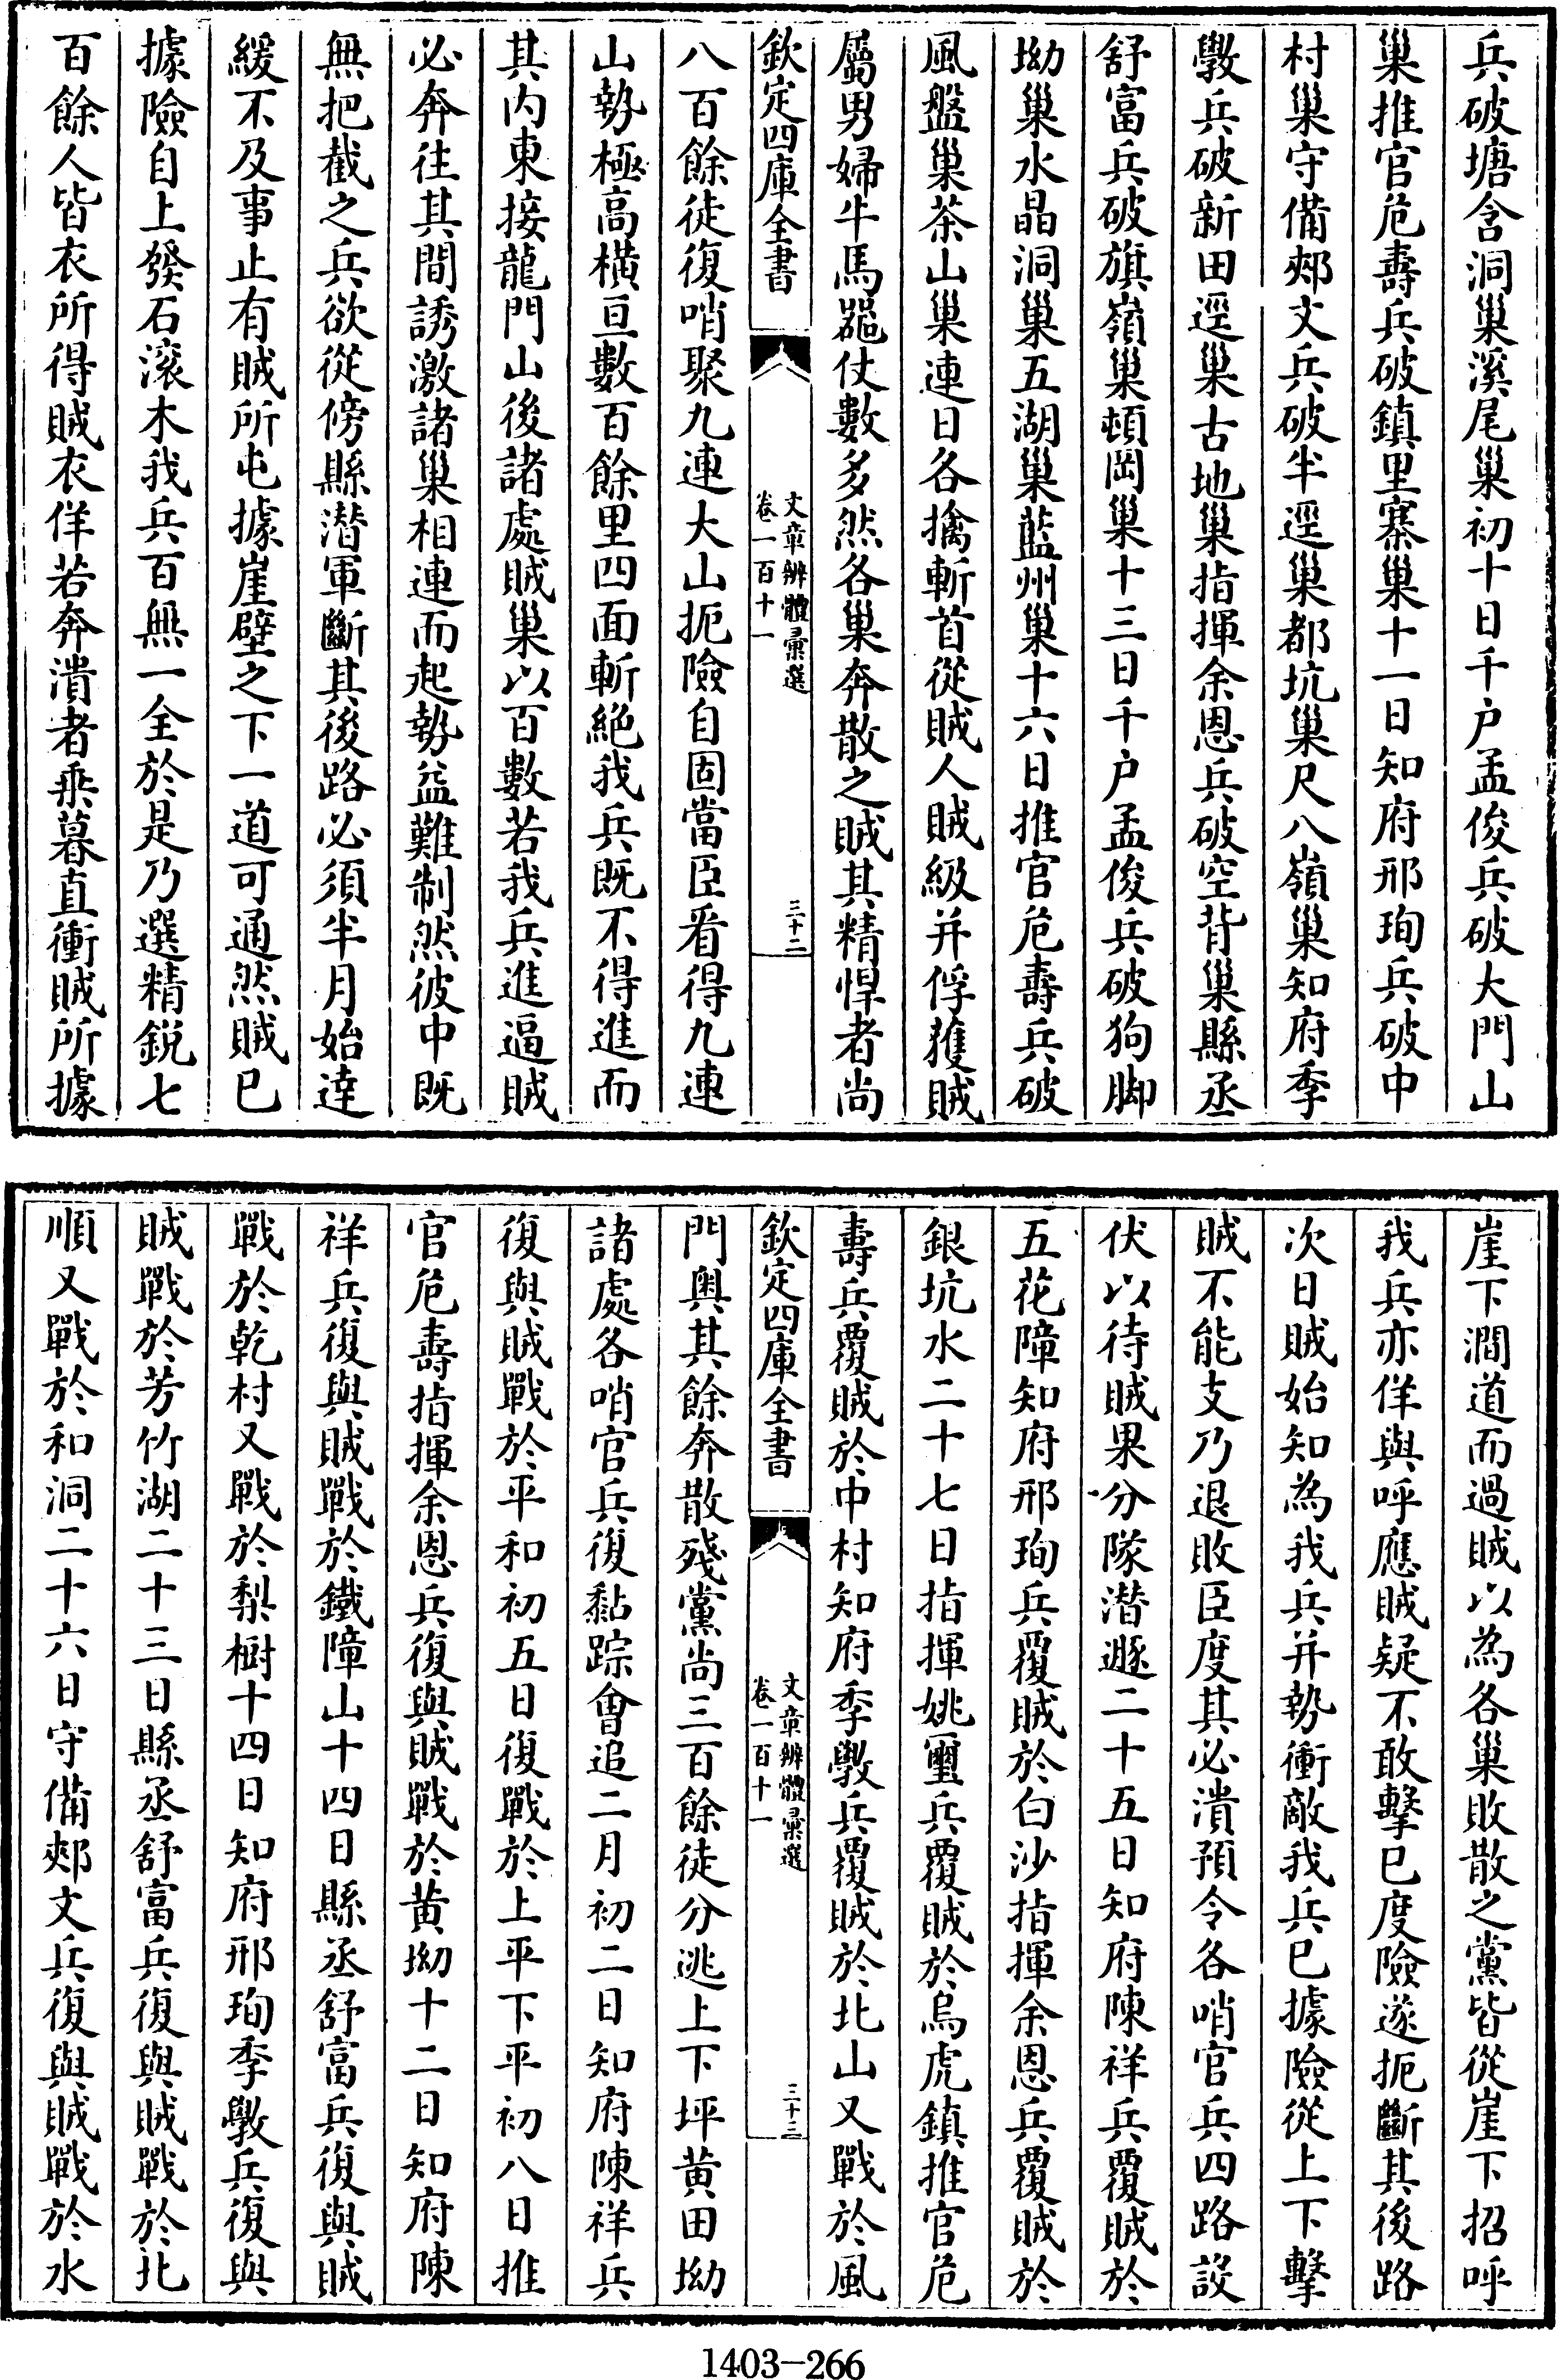 兵破塘含洞巢溪尾巢初十日千户孟俊兵破大門山
巢推官危壽兵破鎮里寨巢十一日知府邢珣兵破中
村巢守備郟文兵破半逕巢都坑巢尺八嶺巢知府季
斆兵破新田逕巢古地巢指揮余恩兵破空背巢縣丞
舒富兵破旗嶺巢頓岡巢十三日千户孟俊兵破狗脚
坳巢水晶洞巢五湖巢藍州巢十六日推官危壽兵破
風盤巢茶山巢連日各擒斬首從賊人賊級并俘獲賊
屬男婦牛馬器仗數多然各巢奔散之賊其精悍者尚
欽定四庫全書
文章辨體彙選
卷一百十一
三十二
八百餘徒復哨聚九連大山扼險自固當臣看得九連
山勢極高橫亘數百餘里四面斬絶我兵既不得進而
其内東接龍門山後諸處賊巢以百數若我兵進逼賊
必奔往其間誘激諸巢相連而起勢益難制然彼中既
無把截之兵欲從傍縣潜軍斷其後路必須半月始達
緩不及事止有賊所屯據崖壁之下一道可通然賊已
據險自上發石滚木我兵百無一全於是乃選精鋭七
百餘人皆衣所得賊衣佯若奔潰者乘暮直衝賊所據
崖下澗道而過賊以為各巢敗散之黨皆從崖下招呼
我兵亦佯與呼應賊疑不敢擊已度險遂扼斷其後路
次日賊始知為我兵并勢衝敵我兵已據險從上下擊
賊不能支乃退敗臣度其必潰預令各哨官兵四路設
伏以待賊果分隊潜遯二十五日知府陳祥兵覆賊於
五花障知府邢珣兵覆賊於白沙指揮余恩兵覆賊於
銀坑水二十七日指揮姚璽兵覆賊於烏虎鎮推官危
壽兵覆賊於中村知府季斆兵覆賊於北山又戰於風
欽定四庫全書
文章辨體彙選
卷一百十一
三十三
門奥其餘奔散殘黨尚三百餘徒分逃上下坪黄田坳
諸處各哨官兵復黏踪會追二月初二日知府陳祥兵
復與賊戰於平和初五日復戰於上平下平初八日推
官危壽指揮余恩兵復與賊戰於黄坳十二日知府陳
祥兵復與賊戰於鐵障山十四日縣丞舒富兵復與賊
戰於乾村又戰於梨樹十四日知府邢珣季斆兵復與
賊戰於芳竹湖二十三日縣丞舒富兵復與賊戰於北
順又戰於和洞二十六日守備郟文兵復與賊戰於水
1403-266